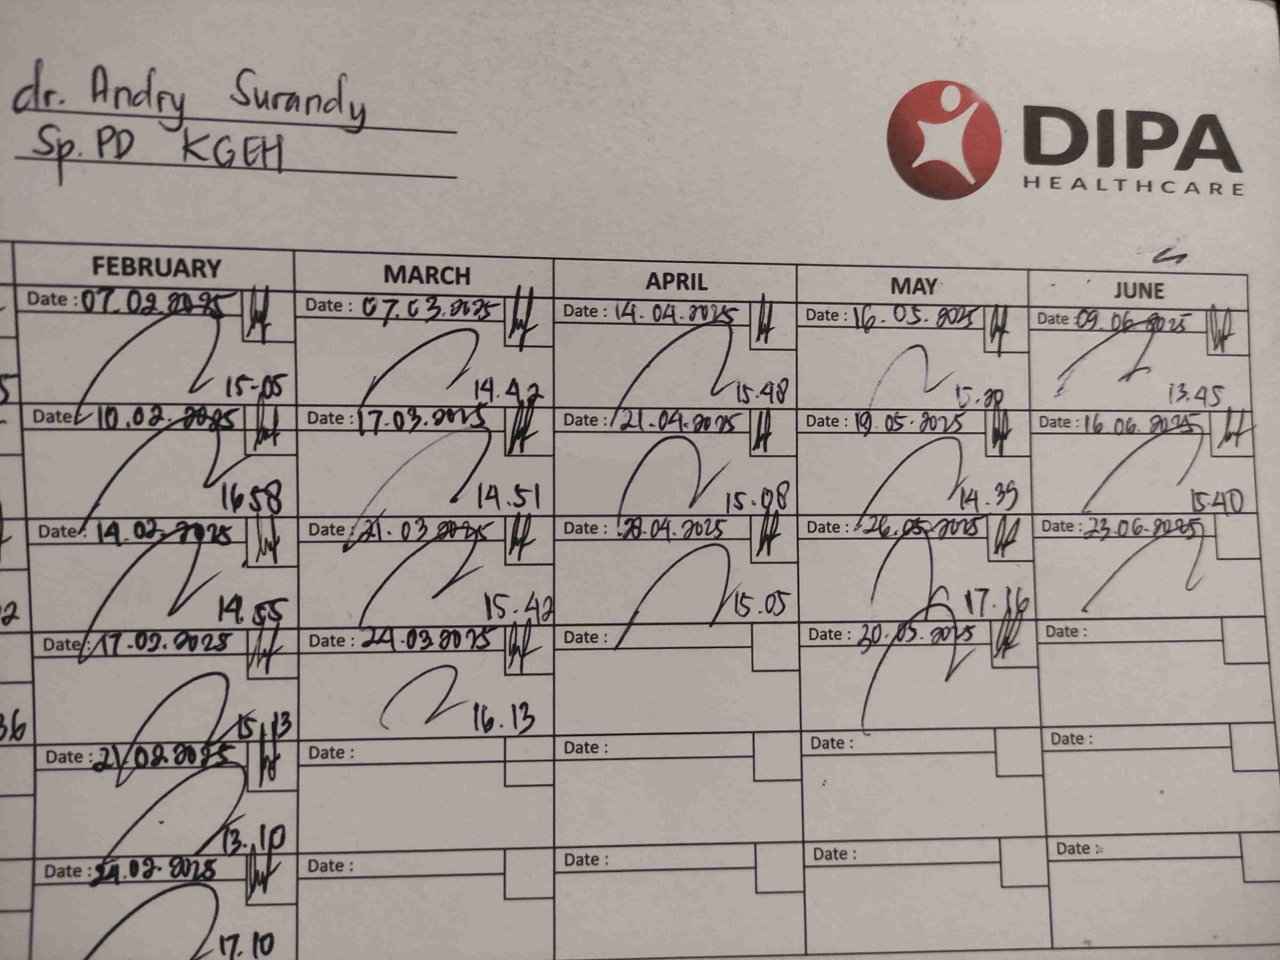 dr. Andry Surandy
Sp. PD KGEH
DIPA
HEALTHCARE
FEBRUARY MARCH APRIL MAY JUNE
Date : 07.02.2025 Date : 07.03.2025 Date : 14.04.2025 Date : 16.05.2025 Date 09.06.2025
15-05 14.42 15.48 13.45
Date 10.02.2025 Date : 17.03.2025 Date : 21.04.2025 Date : 19.05-2025 Date : 16.06.2025
1658 14.51 15.08 14.39 15.40
Date : 14.02.2025 Date : 21.03.2025 Date : 28.04.2025 Date : 26.05.2025 Date : 23.06-2025
14.55 15.42 15.05 17.16
Date : 17.02.2025 Date : 24.03.2025 Date : Date : 30.05.2025 Date :
36 15.13 16.13
Date : 21.02.2025 Date : Date : Date : Date :
13.10
Date : 24.02.2025 Date : Date : Date : Date :
17.10